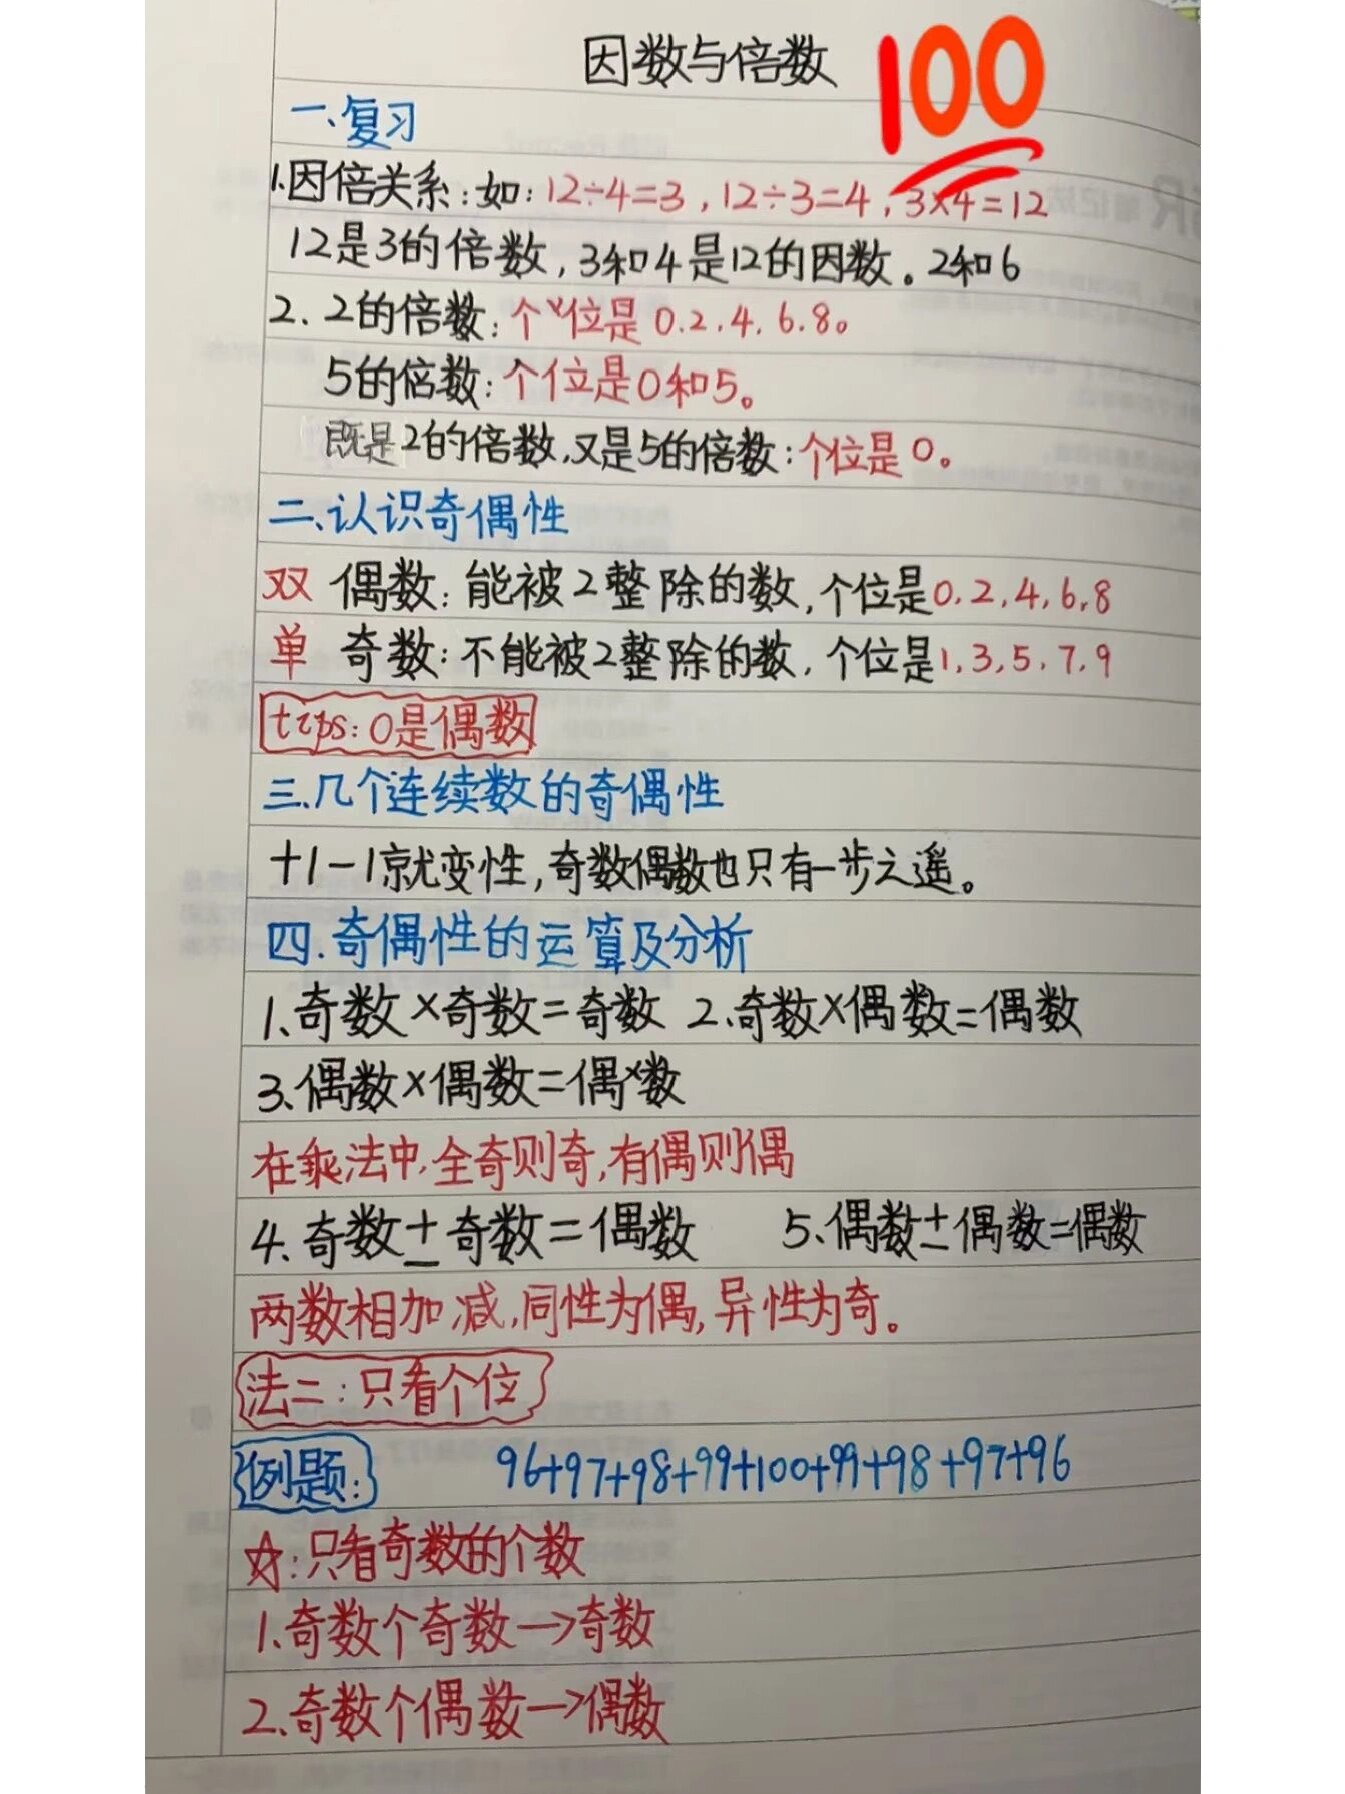 因数与倍数
100
一、复习
1.因倍关系:如:12÷4=3,12÷3=4,3×4=12
12是3的倍数,3和4是12的因数。2和6
2.2的倍数:个位是0.2.4.6.8。
5的倍数:个位是0和5。
既是2的倍数,又是5的倍数:个位是0。
二、认识奇偶性
双 偶数:能被2整除的数,个位是0.2,4,6,8
单 奇数:不能被2整除的数,个位是1,3,5,7,9
tips:0是偶数
三.几个连续数的奇偶性
+1-1就变性,奇数偶数也只有一步之遥。
四.奇偶性的运算及分析
1.奇数×奇数=奇数 2.奇数×偶数=偶数
3.偶数×偶数=偶数
在乘法中,全奇则奇,有偶则偶
4.奇数±奇数=偶数 5.偶数±偶数=偶数
两数相加减,同性为偶,异性为奇。
法二:只看个位
例题: 96+97+98+99+100+99+98+97+96
☆:只看奇数的个数
1.奇数个奇数→奇数
2.奇数个偶数→偶数